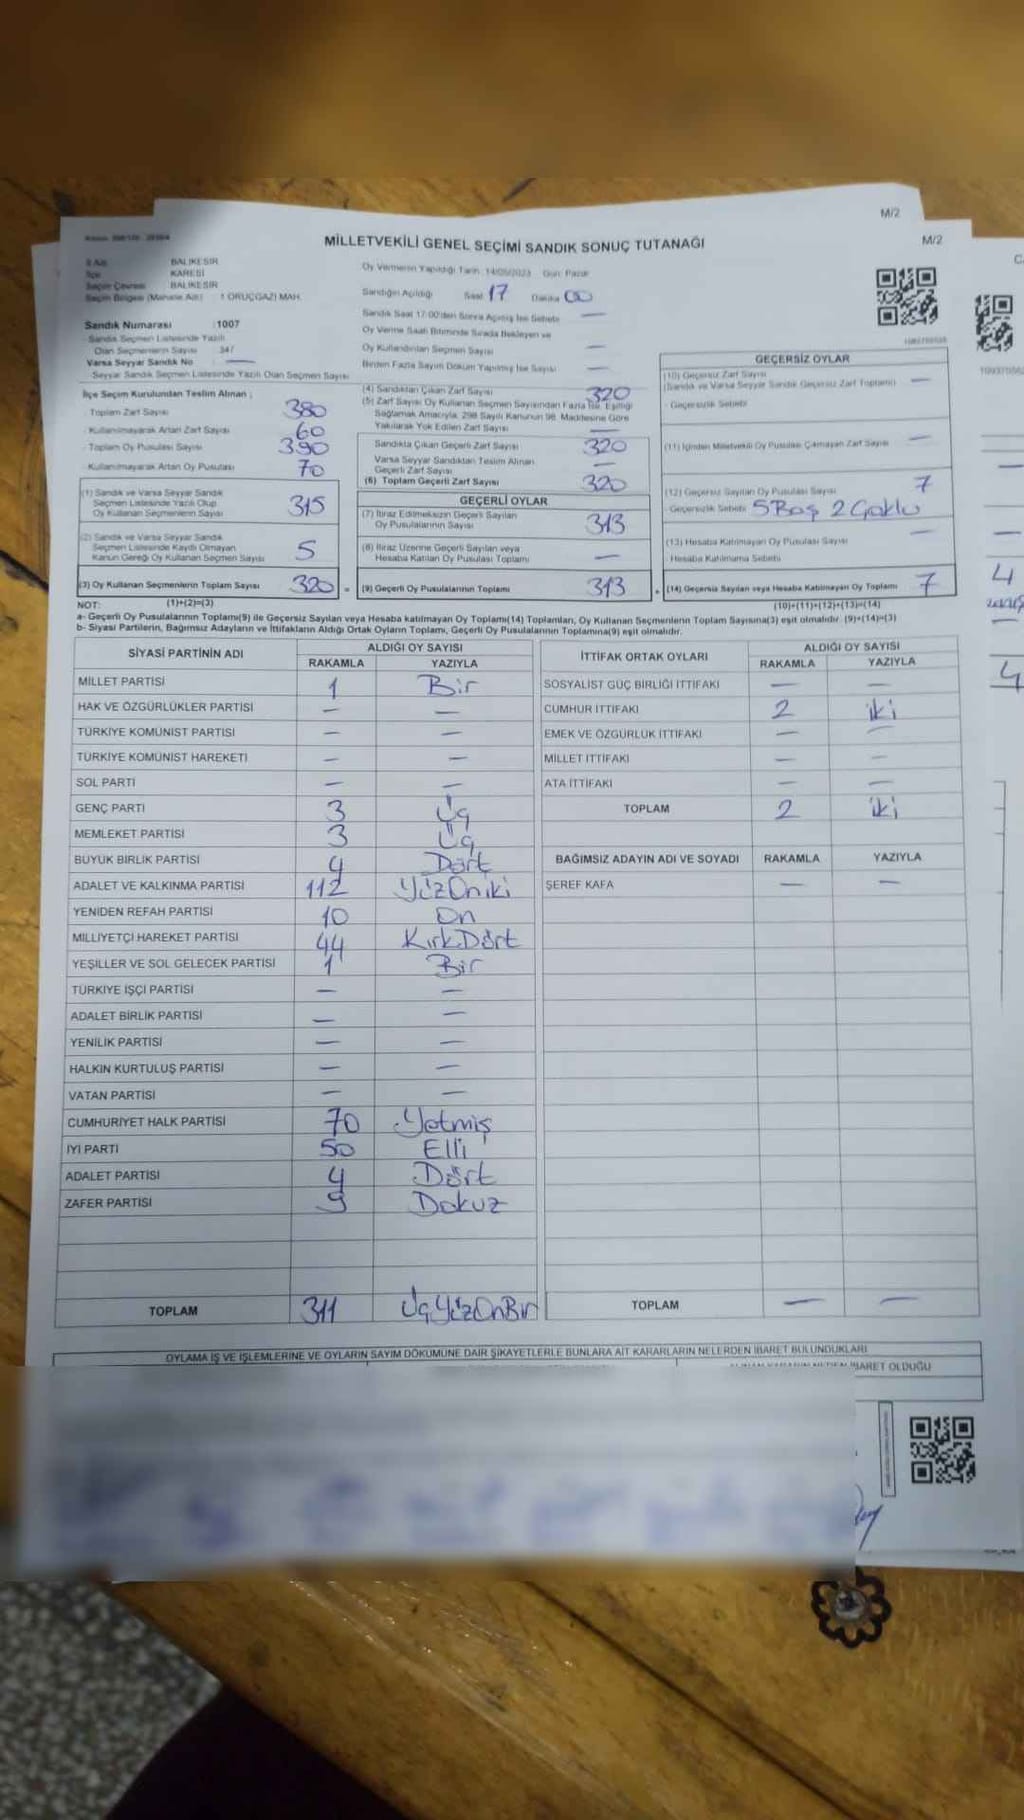 M/2
M/2
MİLLETVEKİLİ GENEL SEÇİMİ SANDIK SONUÇ TUTANAĞI
BALIKESİR
İlçe KARESİ
Seçim Çevresi BALIKESİR
Seçim Bölgesi (Mahalle Adı) 1 ORUÇGAZİ MAH.
Sandık Numarası :1007
Sandık Seçmen Listesinde Yazılı
Olan Seçmenlerin Sayısı 347
Varsa Seyyar Sandık No : —
Seyyar Sandık Seçmen Listesinde Yazılı Olan Seçmen Sayısı
İlçe Seçim Kurulundan Teslim Alınan ;
Toplam Zarf Sayısı 380
Kullanılmayarak Artan Zarf Sayısı 60
Toplam Oy Pusulası Sayısı 390
Kullanılmayarak Artan Oy Pusulası 70
(1) Sandık ve Varsa Seyyar Sandık
Seçmen Listesinde Yazılı Olup
Oy Kullanan Seçmenlerin Sayısı 315
(2) Sandık ve Varsa Seyyar Sandık
Seçmen Listesinde Kayıtlı Olmayan
Kanun Gereği Oy Kullanan Seçmen Sayısı 5
(3) Oy Kullanan Seçmenlerin Toplam Sayısı 320 =
(1)+(2)=(3)
Oy Vermenin Yapıldığı Tarih: 14/05/2023 Gün: Pazar
Sandığın Açıldığı Saat 17 Dakika 00
Sandık Saat 17:00'den Sonra Açılmış İse Sebebi —
Oy Verme Saati Bitiminde Sırada Bekleyen ve
Oy Kullandırılan Seçmen Sayısı —
Birden Fazla Sayım Döküm Yapılmış İse Sayısı —
(4) Sandıktan Çıkan Zarf Sayısı 320
(5) Zarf Sayısı Oy Kullanan Seçmen Sayısından Fazla İse, Eşitliği
Sağlamak Amacıyla, 298 Sayılı Kanunun 98. Maddesine Göre
Yakılarak Yok Edilen Zarf Sayısı —
Sandıkta Çıkan Geçerli Zarf Sayısı 320
Varsa Seyyar Sandıktan Teslim Alınan
Geçerli Zarf Sayısı —
(6) Toplam Geçerli Zarf Sayısı 320
GEÇERLİ OYLAR
(7) İtiraz Edilmeksizin Geçerli Sayılan
Oy Pusulalarının Sayısı 313
(8) İtiraz Üzerine Geçerli Sayılan veya
Hesaba Katılan Oy Pusulası Toplamı —
(9) Geçerli Oy Pusulalarının Toplamı 313 +
GEÇERSİZ OYLAR
(10) Geçersiz Zarf Sayısı
(Sandık ve Varsa Seyyar Sandık Geçersiz Zarf Toplamı) —
Geçersizlik Sebebi
(11) İçinden Milletvekili Oy Pusulası Çıkmayan Zarf Sayısı —
(12) Geçersiz Sayılan Oy Pusulası Sayısı 7
Geçersizlik Sebebi 5 Boş 2 Çoklu
(13) Hesaba Katılmayan Oy Pusulası Sayısı —
Hesaba Katılmama Sebebi
(14) Geçersiz Sayılan veya Hesaba Katılmayan Oy Toplamı 7
(10)+(11)+(12)+(13)=(14)
NOT:
a- Geçerli Oy Pusulalarının Toplamı(9) ile Geçersiz Sayılan veya Hesaba katılmayan Oy Toplamı(14) Toplamları, Oy Kullanan Seçmenlerin Toplam Sayısına(3) eşit olmalıdır. (9)+(14)=(3)
b- Siyasi Partilerin, Bağımsız Adayların ve İttifakların Aldığı Ortak Oyların Toplamı, Geçerli Oy Pusulalarının Toplamına(9) eşit olmalıdır.
SİYASİ PARTİNİN ADI ALDIĞI OY SAYISI
RAKAMLA YAZIYLA
MİLLET PARTİSİ 1 Bir
HAK VE ÖZGÜRLÜKLER PARTİSİ — —
TÜRKİYE KOMÜNİST PARTİSİ — —
TÜRKİYE KOMÜNİST HAREKETİ — —
SOL PARTİ — —
GENÇ PARTİ 3 Üç
MEMLEKET PARTİSİ 3 Üç
BÜYÜK BİRLİK PARTİSİ 4 Dört
ADALET VE KALKINMA PARTİSİ 112 YüzOniki
YENİDEN REFAH PARTİSİ 10 On
MİLLİYETÇİ HAREKET PARTİSİ 44 KırkDört
YEŞİLLER VE SOL GELECEK PARTİSİ 1 Bir
TÜRKİYE İŞÇİ PARTİSİ — —
ADALET BİRLİK PARTİSİ — —
YENİLİK PARTİSİ — —
HALKIN KURTULUŞ PARTİSİ — —
VATAN PARTİSİ — —
CUMHURİYET HALK PARTİSİ 70 Yetmiş
İYİ PARTİ 50 Elli
ADALET PARTİSİ 4 Dört
ZAFER PARTİSİ 9 Dokuz
TOPLAM 311 ÜçYüzOnBir
İTTİFAK ORTAK OYLARI ALDIĞI OY SAYISI
RAKAMLA YAZIYLA
SOSYALİST GÜÇ BİRLİĞİ İTTİFAKI — —
CUMHUR İTTİFAKI 2 iki
EMEK VE ÖZGÜRLÜK İTTİFAKI — —
MİLLET İTTİFAKI — —
ATA İTTİFAKI — —
TOPLAM 2 iki
BAĞIMSIZ ADAYIN ADI VE SOYADI RAKAMLA YAZIYLA
ŞEREF KAFA — —
TOPLAM — —
OYLAMA İŞ VE İŞLEMLERİNE VE OYLARIN SAYIM DÖKÜMÜNE DAİR ŞİKAYETLERLE BUNLARA AİT KARARLARIN NELERDEN İBARET BULUNDUKLARI
İBARET OLDUĞU
4
4